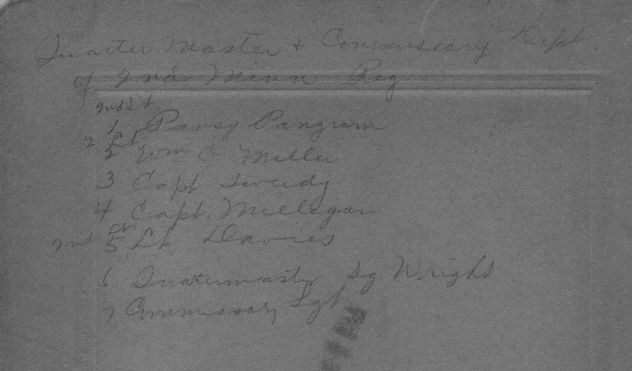 Quarter Master & Commissary Dept.
of 2nd Minn Reg
2nd Lt
1 Pansy Pangram
2 Lt
2 Wm C Miller
3 Capt Tweedy
4 Capt. Millegan
2nd Lt
5 Lt Davies
6 Quatermastr Sg Wright
7 Commissary Sgt